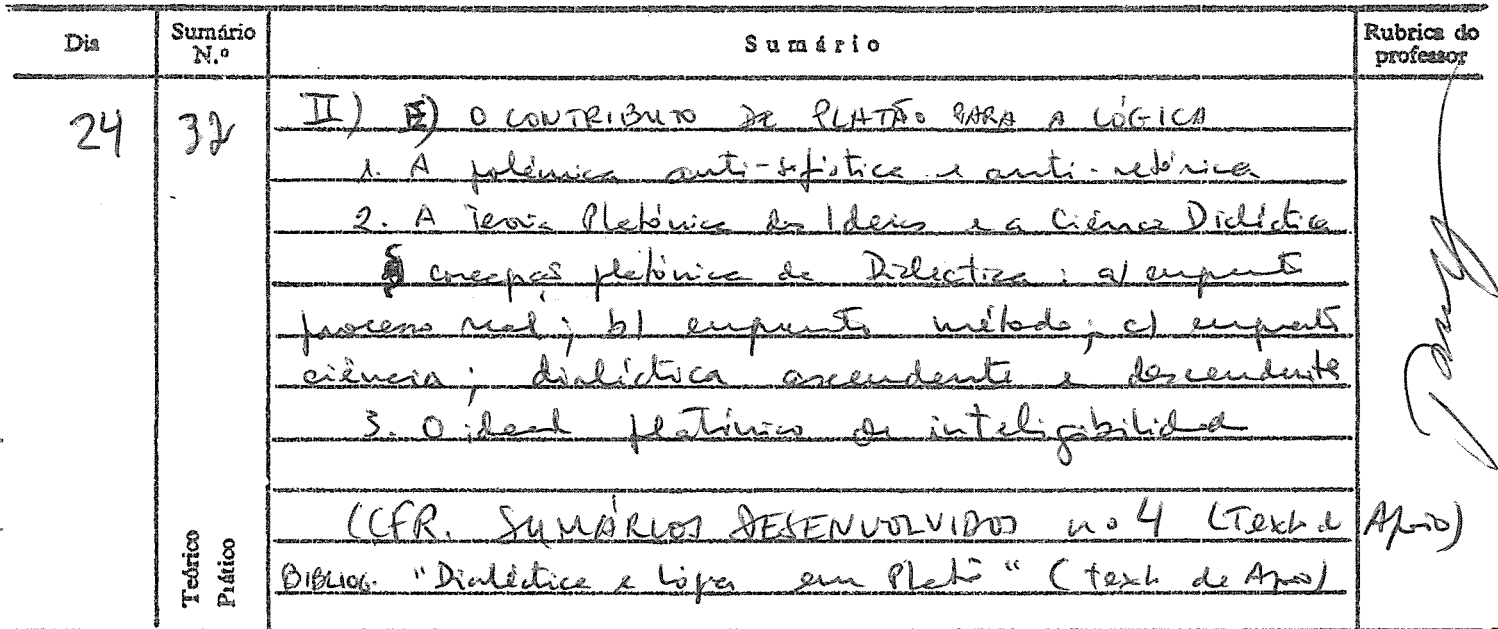 Dia Sumário N.º Sumário Rubrica do professor
24 32 II) E) O CONTRIBUTO DE PLATÃO PARA A LÓGICA
1. A polémica anti-sofística e anti-retórica
2. A Teoria Platónica das Ideias e a Ciência Dialéctica
concepção platónica da Dialéctica: a) enquanto
processo real; b) enquanto método; c) enquanto
ciência; dialéctica ascendente e descendente
3. O ideal platónico de inteligibilidade
(CFR. SUMÁRIOS DESENVOLVIDOS nº 4 (Texto de Apoio)
BIBLIOG. "Dialéctica e Lógica em Platão" (texto de Apoio)
Teórico
Prático